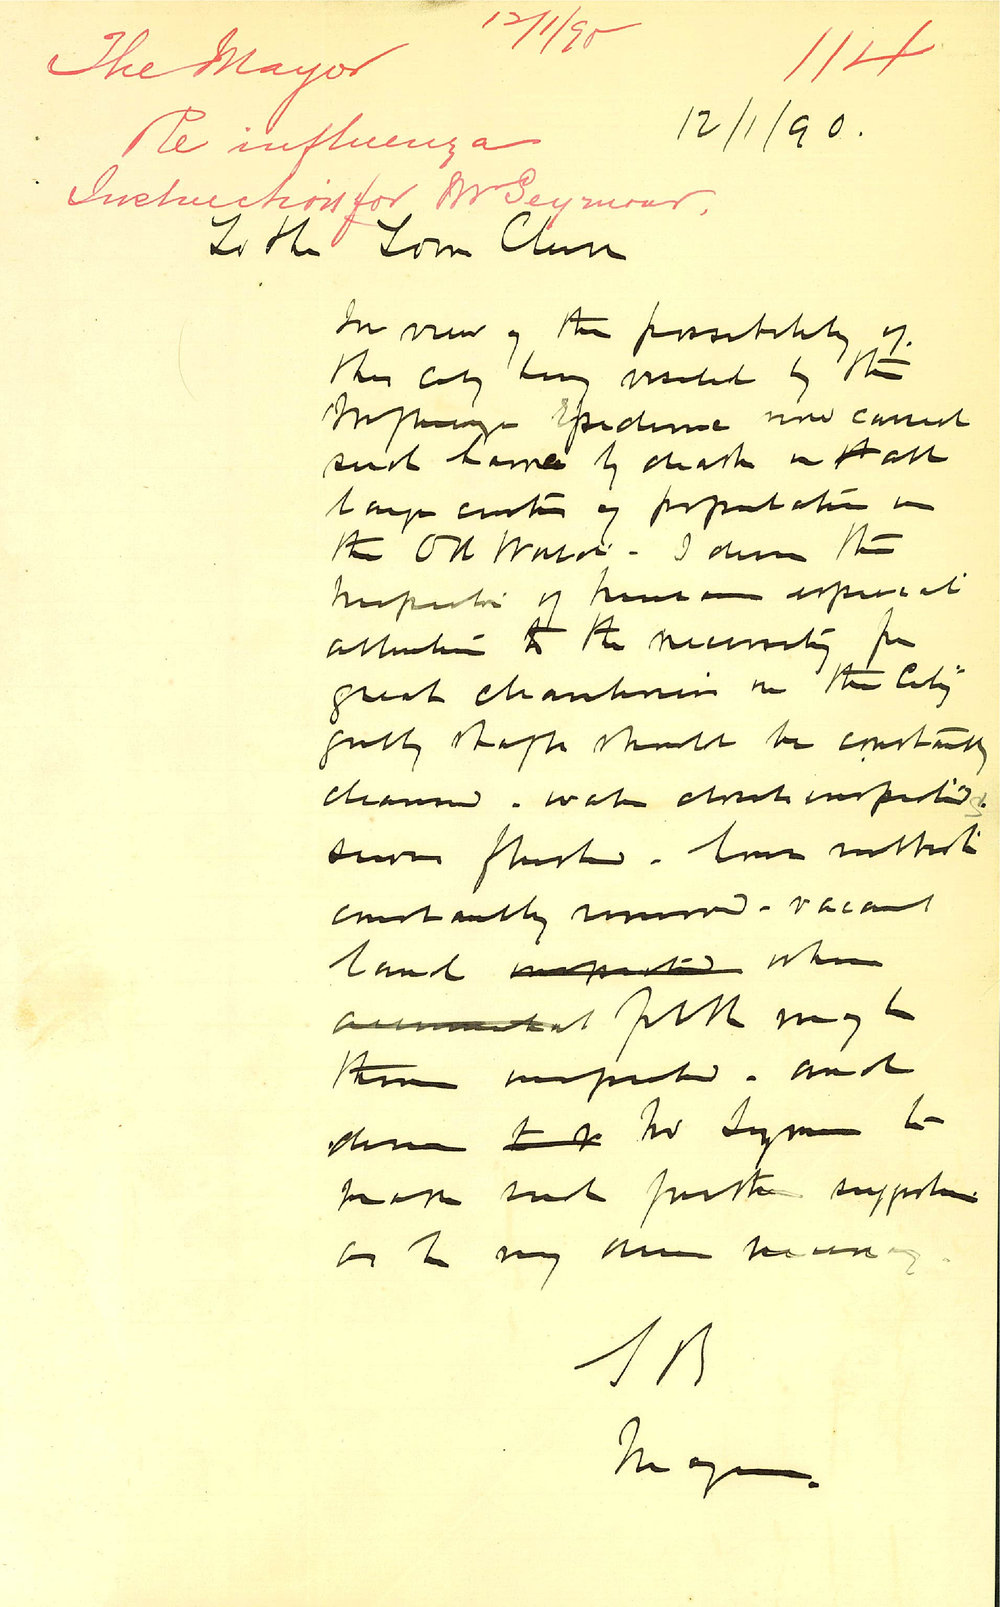 12/1/90
114
The Mayor
12/1/90.
Re influenza
Instructions for Mr Seymour.
To the Town Clerk
In view of the possibility of
this city being visited by the
Influenza Epidemic now caused
such havoc by death in all
large centres of population in
the Old World - I desire the
Inspector of Nuisances especial
attention to the necessity for
great cleanliness in the City
gully shafts should be constantly
cleansed - water closets inspected
sewers flushed - house rubbish
constantly removed - vacant
land inspected where
accumulated filth may be
thrown inspected - and
desire Mr Seymour to
make such further suggestions
as he may deem necessary.
S B
Mayor.